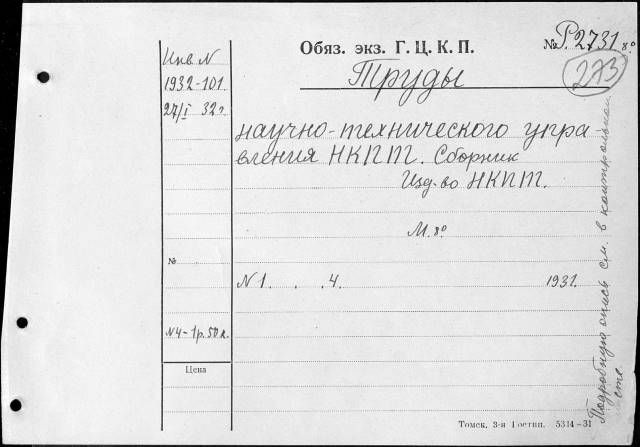 Обяз. экз. Г. Ц. К. П.
№ Р.2731 8°
273
Инв. N
1932-101
27/I 32 г.
Труды
научно-технического упра-
вления НКПТ. Сборник
Изд-во НКПТ.
М. 8°
№
N 1 . . . 4.
1931.
N4-1р. 50 к.
Цена
Подробную опись см. в контрольной
Томск, 3-я Гостип. 5314-31